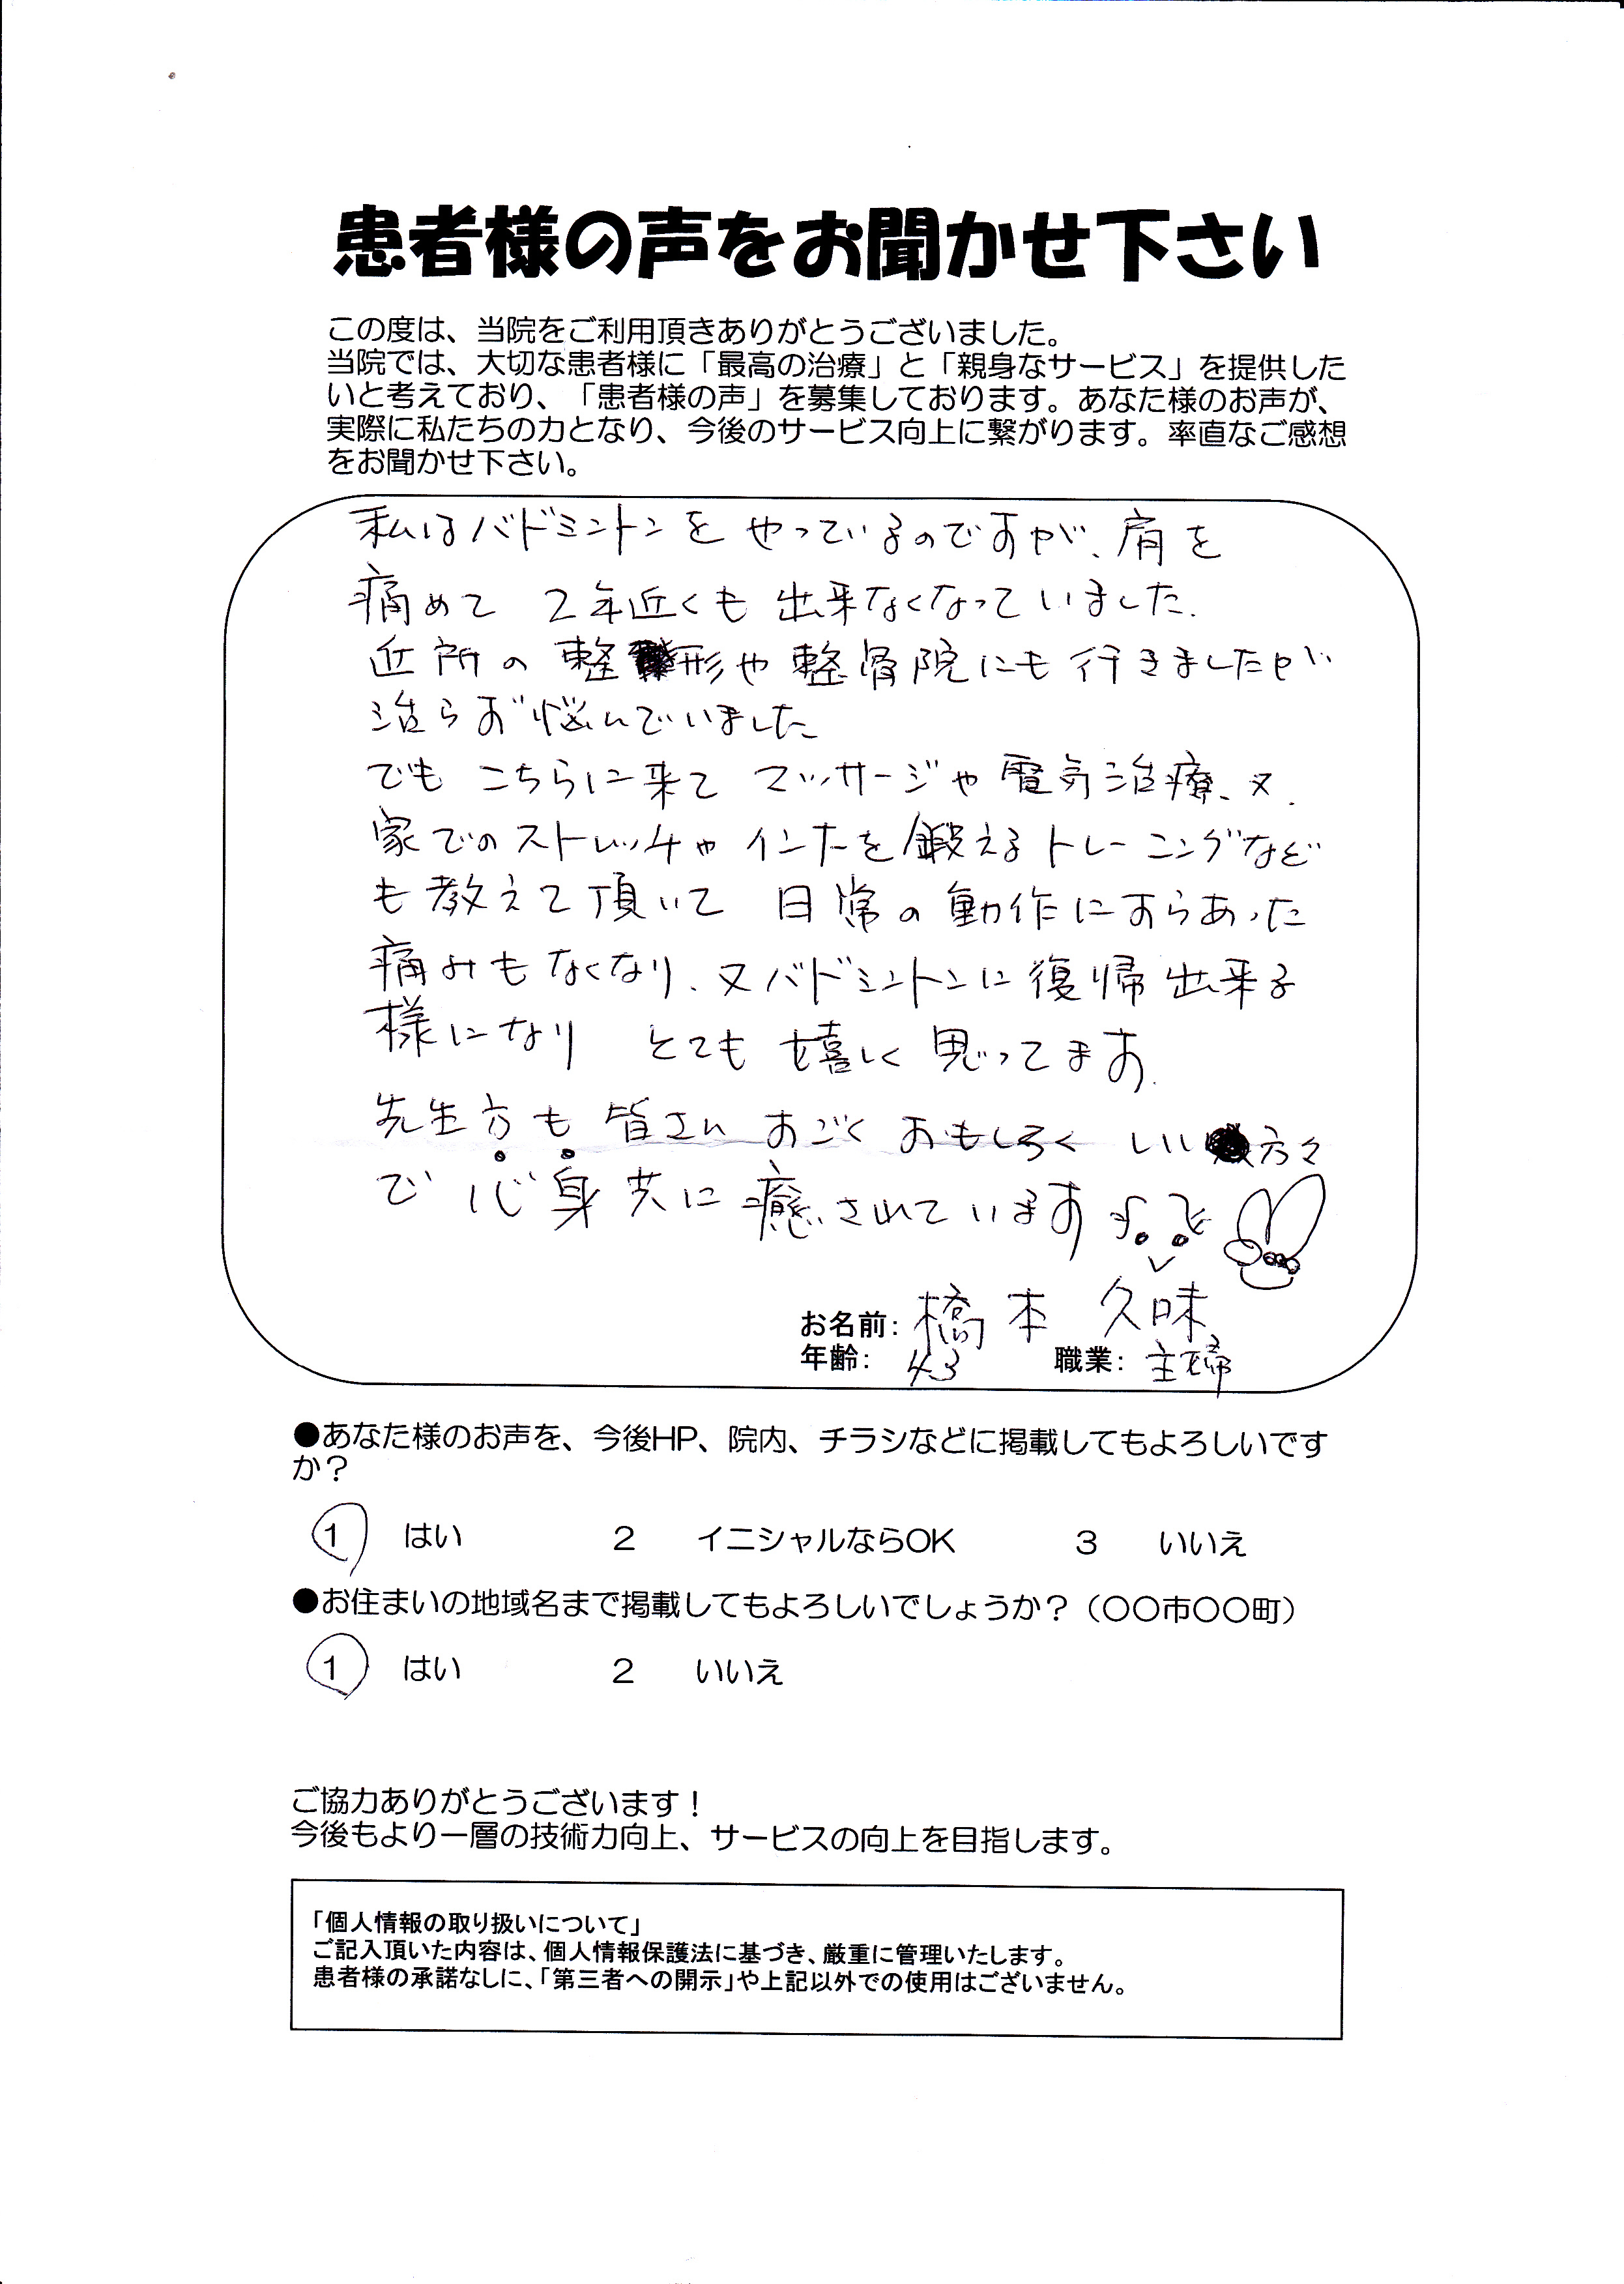 患者様の声をお聞かせ下さい
この度は、当院をご利用頂きありがとうございました。
当院では、大切な患者様に「最高の治療」と「親身なサービス」を提供した
いと考えており、「患者様の声」を募集しております。あなた様のお声が、
実際に私たちの力となり、今後のサービス向上に繋がります。率直なご感想
をお聞かせ下さい。
私はバドミントンをやっているのですが、肩を
痛めて 2年近くも出来なくなっていました.
近所の整形や整骨院にも行きましたが
治らず悩んでいました
でもこちらに来てマッサージや電気治療、又、
家でのストレッチやインナーを鍛えるトレーニングなど
も教えて頂いて 日常の動作にすらあった
痛みもなくなり、又バドミントンに復帰出来る
様になり とても嬉しく思ってます.
先生方も皆さん すごく おもしろく いい方々
で 心身共に癒されています
お名前: 橋本 久味
年齢: 43 職業: 主婦
●あなた様のお声を、今後HP、院内、チラシなどに掲載してもよろしいです
か?
1 はい 2 イニシャルならOK 3 いいえ
●お住まいの地域名まで掲載してもよろしいでしょうか?(〇〇市〇〇町)
1 はい 2 いいえ
ご協力ありがとうございます!
今後もより一層の技術力向上、サービスの向上を目指します。
「個人情報の取り扱いについて」
ご記入頂いた内容は、個人情報保護法に基づき、厳重に管理いたします。
患者様の承諾なしに、「第三者への開示」や上記以外での使用はございません。